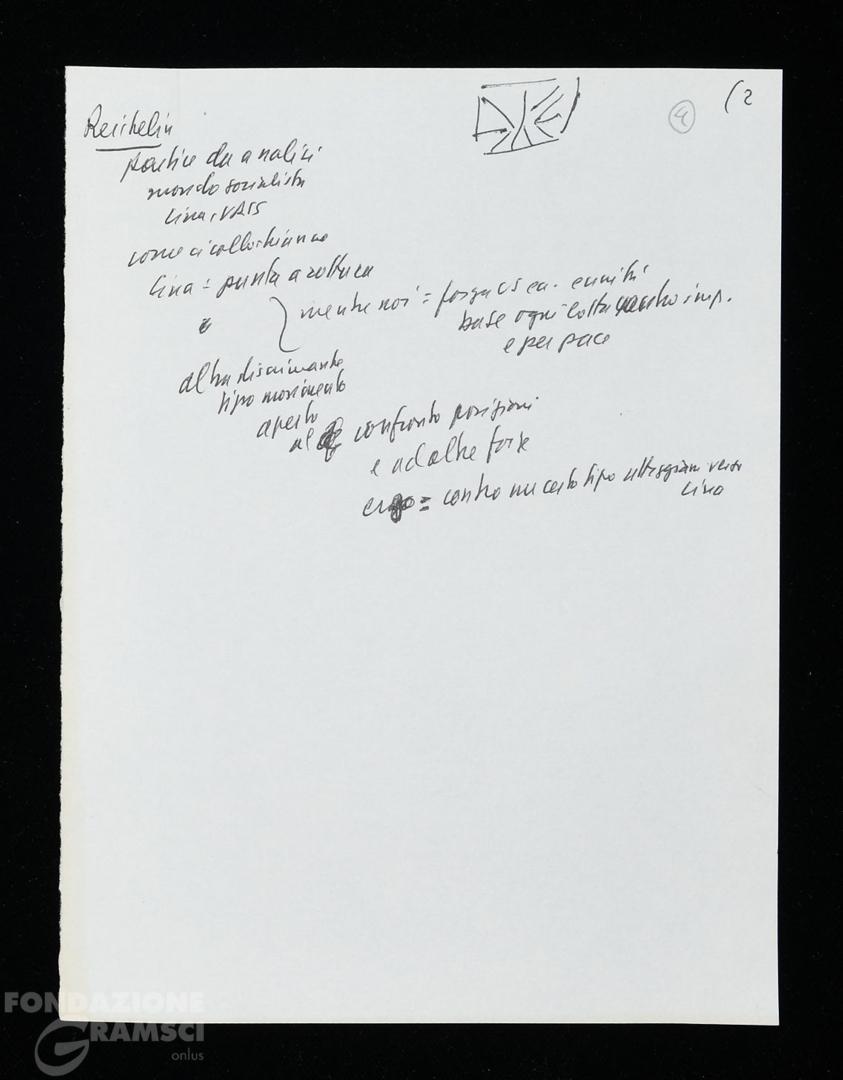 (2
4
Reichelin
partire da analisi
mondo socialista
Cina, URSS
come ci collochiamo
Cina = punta a rottura
mentre noi = forza CS ed. e unità
base ogni lotta contro imp.
e per pace
altra discriminante
tipo movimento
aperto
al confronto posizioni
e ad altre forze
ergo = contro un certo tipo verso
Cina
FONDAZIONE
GRAMSCI
onlus